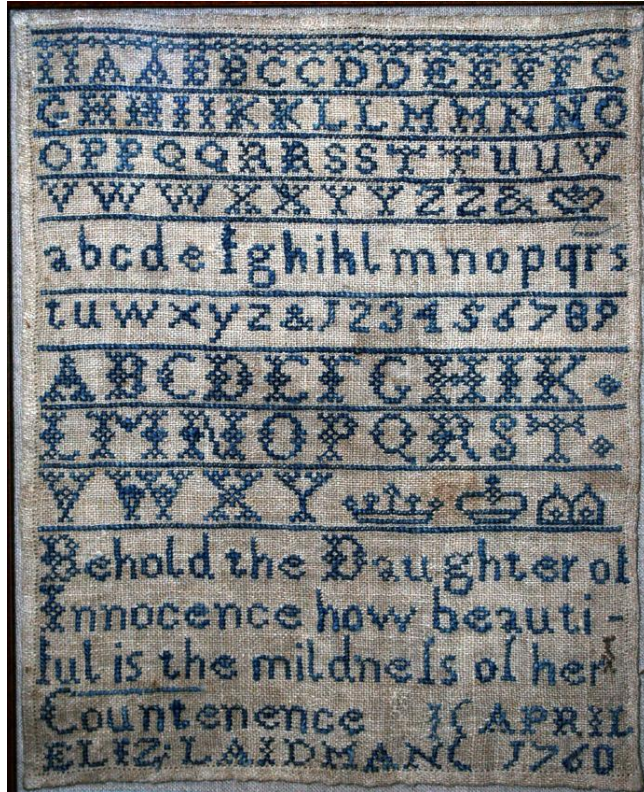 A A B B C C D D E E F F G
G H H I I K K L L M M N N O
O P P Q Q R R S S T T U U V
V W W X X Y Y Z Z &
a b c d e f g h i k l m n o p q r s
t u w x y z & 1 2 3 4 5 6 7 8 9
A B C D E F G H I K
L M N O P Q R S T
V W X Y
Behold the Daughter of
Innocence how beauti-
ful is the mildneſs of her
Countenence APRIL
ELIZ: LAIDMAN 1760